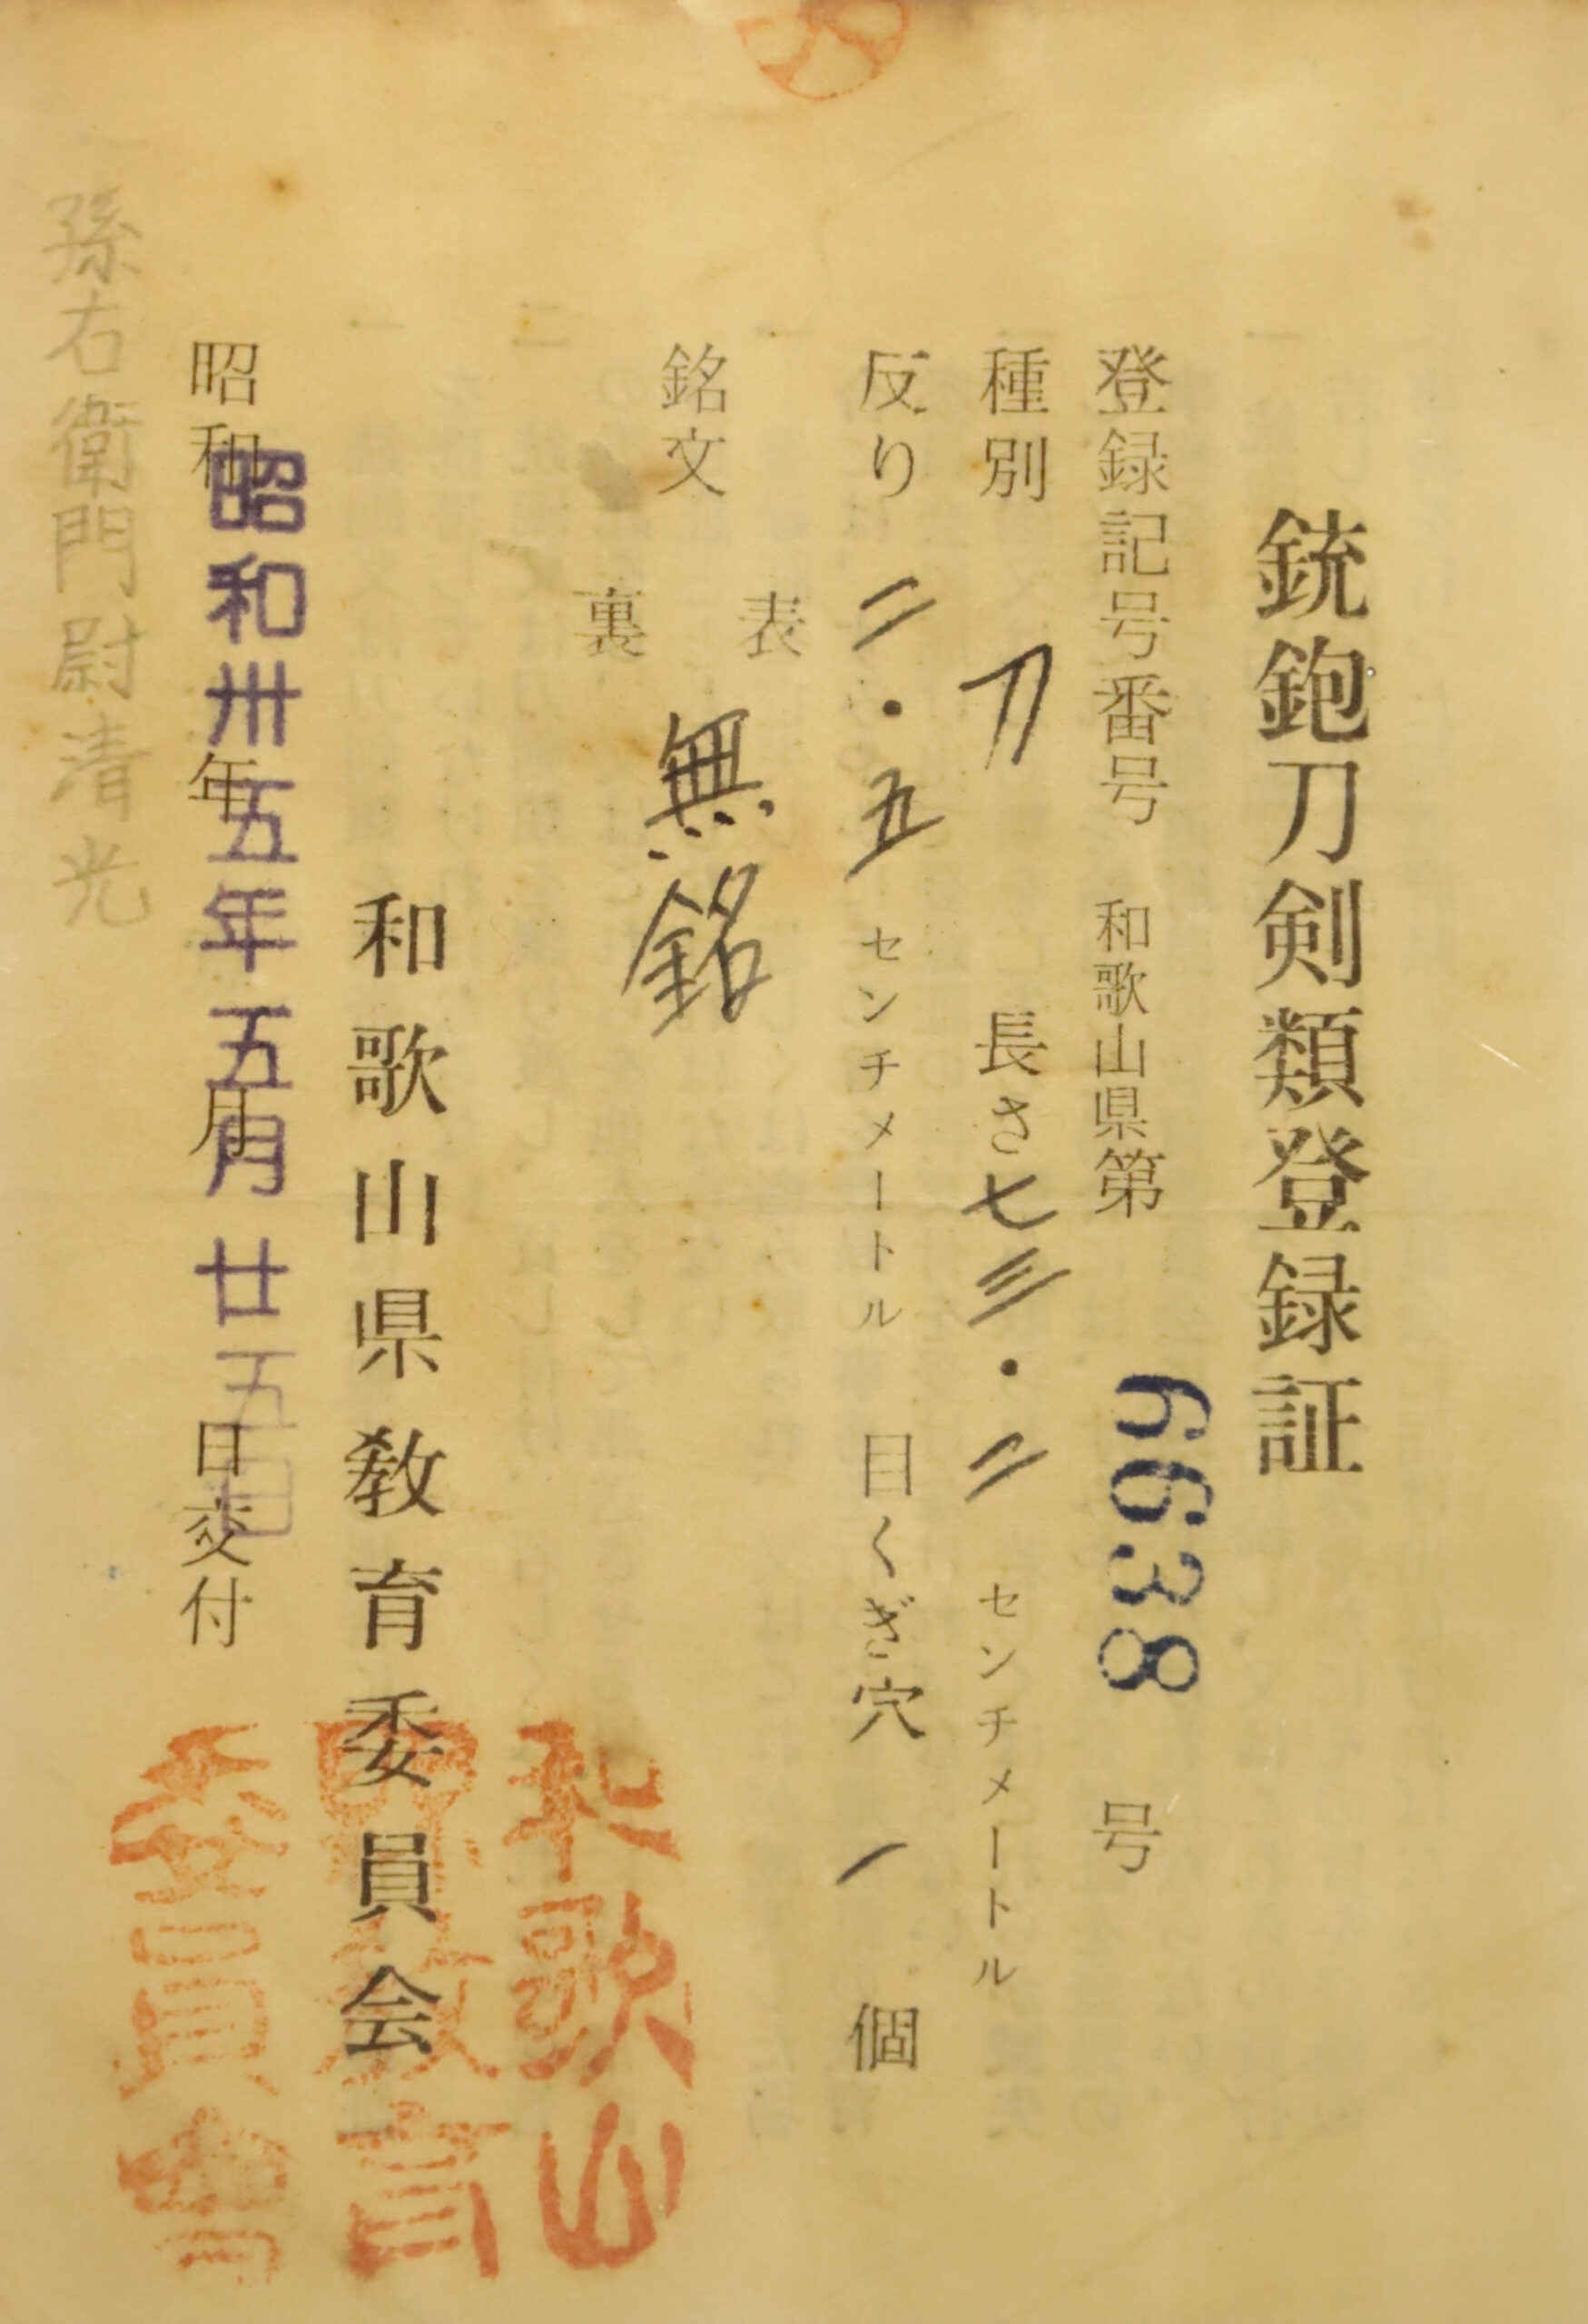 銃砲刀剣類登録証
登録記号番号 和歌山県第 6638 号
種別 刀 長さ 七三・二 センチメートル
反り 二・五 センチメートル 目くぎ穴 1 個
銘文
表
無銘
裏
和歌山県教育委員会
昭和 年 月 日交付
昭和卅五年五月廿五日
孫右衛門尉清光
和歌山
県教育
委員会